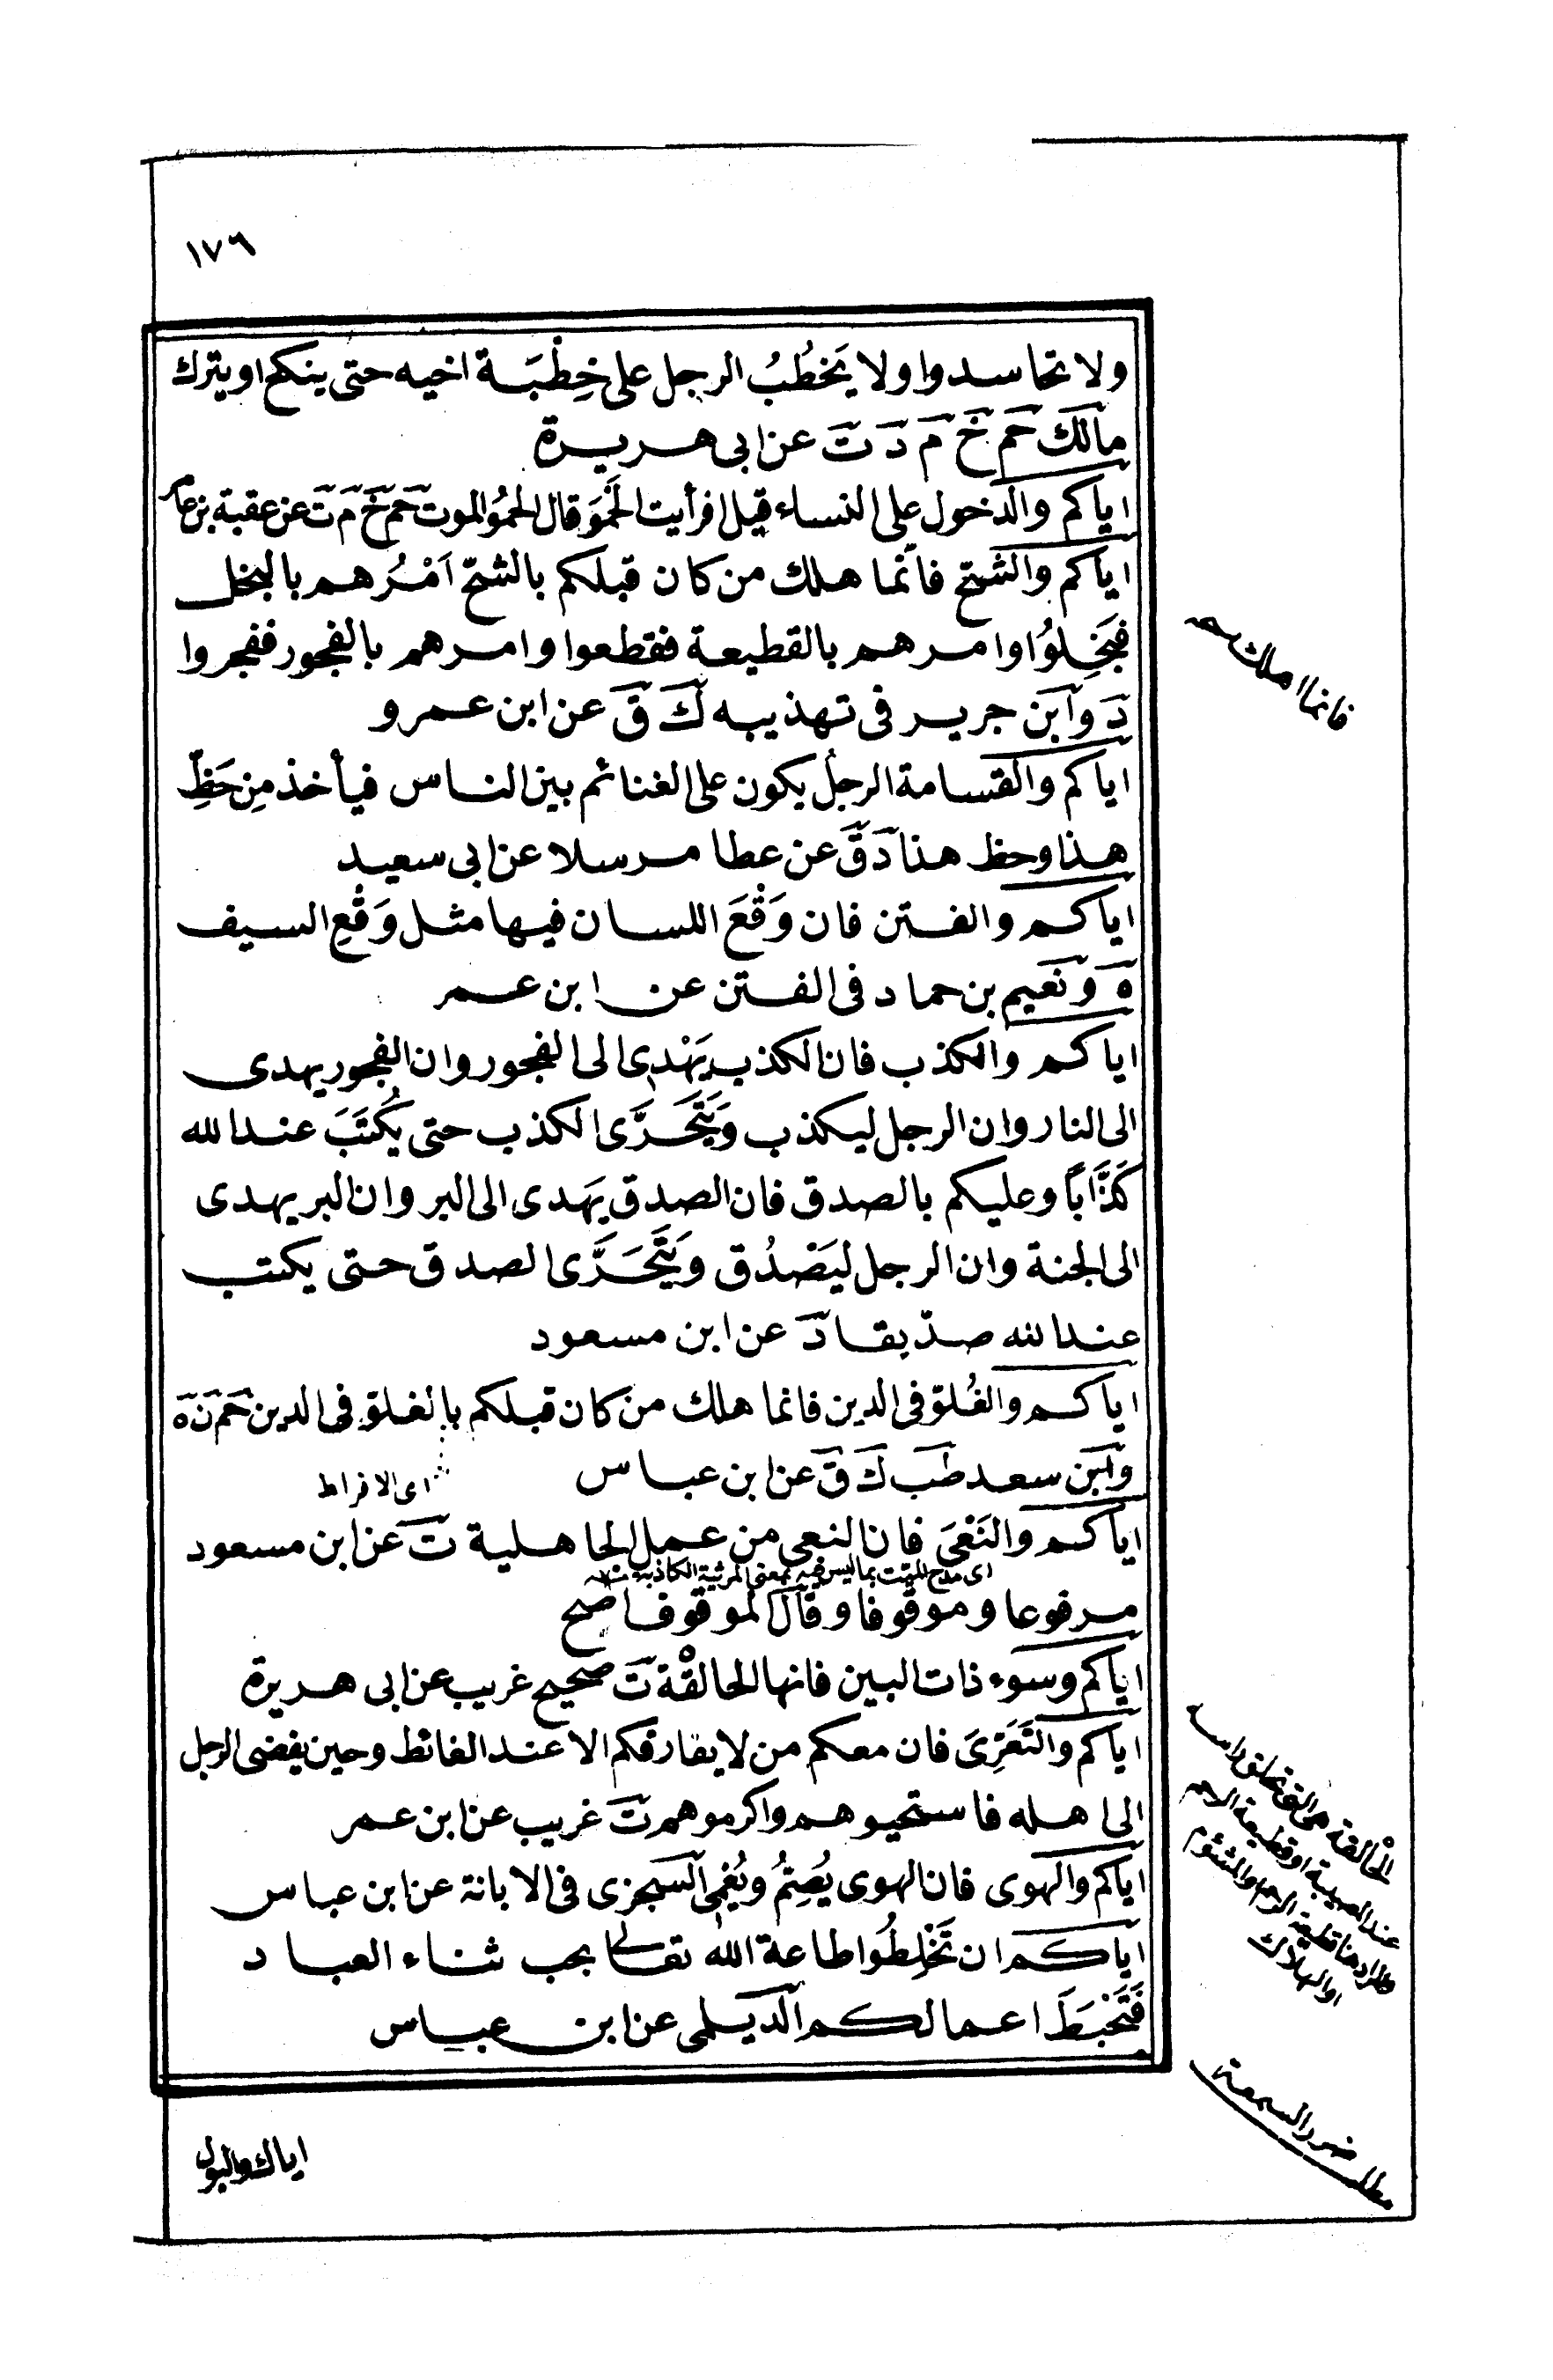 ١٧٦
ولا تحاسدوا ولا يَخطُبُ الرجل على خِطْبَة اخيه حتى ينكح او يترك
مالك حم خ م د ت عن ابى هريرة
اياكم والدخول على النساء قيل افرأيت الحَموَ قال الحموُ الموت حم خ م ت عن عقبة بن عامر
اياكم والشح فانّما هلك من كان قبلكم بالشحّ اَمَرُهم بالبخل
فبَخِلوُا وامرهم بالقطيعة فقطعوا وامرهم بالفجور ففجروا
د وابن جرير فى تهذيبه ك ق عن ابن عمرو
اياكم والقسامة الرجل يكون على الغنائم بين الناس فيأخذ مِن حَظِّ
هذا وحظ هذا د ق عن عطا مرسلا عن ابى سعيد
اياكم والفتن فان وَقْعَ اللسان فيها مثل وَقْعِ السيف
ه ونعيم بن حماد فى الفتن عن ابن عمر
اياكم والكذب فان الكذب يَهْدِى الى الفجور وان الفجور يهدى
الى النار وان الرجل ليكذب ويَتَحَرَّى الكذب حتى يُكتَبَ عند الله
كَذَّاباً وعليكم بالصدق فان الصدق يَهدى الى البر وان البر يهدى
الى الجنة وان الرجل ليَصْدُق ويَتَحَرَّى الصدق حتى يكتب
عند الله صدّيقا د عن ابن مسعود
اياكم والغُلوّ فى الدين فانما هلك من كان قبلكم بالغلوّ فى الدين حم ن ه
وابن سعد طب ك ق عن ابن عباس
اى الافراط
اياكم والنَعْىَ فان النعى من عمل الجاهلية ت عن ابن مسعود
اى مدح الميّت بما ليس فيه بمعنى المرثية الكاذبة
مرفوعا وموقوفا وقال الموقوف اصح
اياكم وسوء ذات البين فانها الحالقْة ت صحيح غريب عن ابى هريرة
اياكم والتَعَرِّىَ فان معكم من لا يفارقكم الا عند الغائط وحين يفضى الرجل
الى اهله فاستحيوهم واكرموهم ت غريب عن ابن عمر
اياكم والهوى فان الهوى يُصِمُّ ويُعْمِى السجزى فى الابانة عن ابن عباس
اياكم ان تَخْلِطُوا طاعة الله تعالى بحب ثناء العباد
فَتَحْبَطَ اعمالكم الديلمى عن ابن عباس
فانما اهلك
الحالقة هى التى تحلق رأسها
عند المصيبة او قطيعة الرحم
والمراد هنا قطيعة الرحم والشئوم
او الهلاك
مطلب ضرر السمعة
اياك والبول